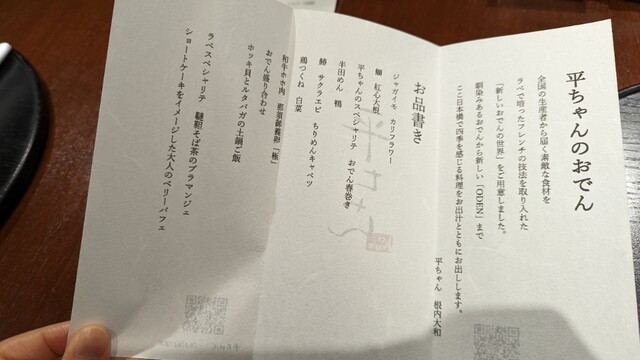 平ちゃんのおでん
全国の生産者から届く素敵な食材を
ラペで培ったフレンチの技法を取り入れた
「新しいおでんの世界」をご用意しました。
馴染みあるおでんから新しい「ODEN」まで
ここ日本橋で四季を感じる料理をお出汁とともにお出しします。
平ちゃん 根内大和
お品書き
ジャガイモ カリフラワー
鰤 紅心大根
平ちゃんのスペシャリテ おでん春巻き
半田めん 鴨
鰆 サクラエビ ちりめんキャベツ
鶏つくね 白菜
和牛ホホ肉 那須御養卵「極」
おでん盛り合わせ
ホッキ貝とルタバガの土鍋ご飯
ラペスペシャリテ 韃靼そば茶のブラマンジェ
ショートケーキをイメージした大人のベリーパフェ